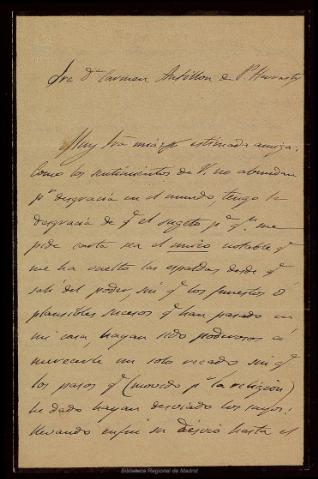 Sra Dª Carmen Antillon de P. Hernandez
Muy Sra mia y estimada amiga:
Como los sentimientos de V. no abundan
pr desgracia en el mundo tengo la
desgracia de q. el sugeto pª qn me
pide carta sea el unico notable q.
me ha vuelto las espaldas desde q.
salí del poder, sin q. los funestos ó
plausibles sucesos q. han pasado en
mi casa, hayan sido poderosos á
merecerle un solo recado sin q.
los pasos q. (movido pr la religion)
he dado hayan desviado los suyos:
llevando en fin su desvío hasta el
Biblioteca Regional de Madrid